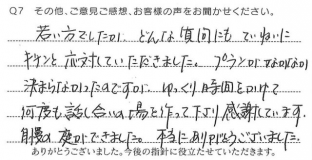 Q7 その他、ご意見ご感想、お客様の声をお聞かせください。
若い方でしたが、どんな質問にも ていねいに
キチンと応対していただきました。プランがなかなか
決まらなかったのですが、ゆっくり時間をかけて
何度も話し合いの場を作って下さり感謝しています。
自慢の庭ができました。本当にありがとうございました。
ありがとうございました。今後の指針に役立たせていただきます。